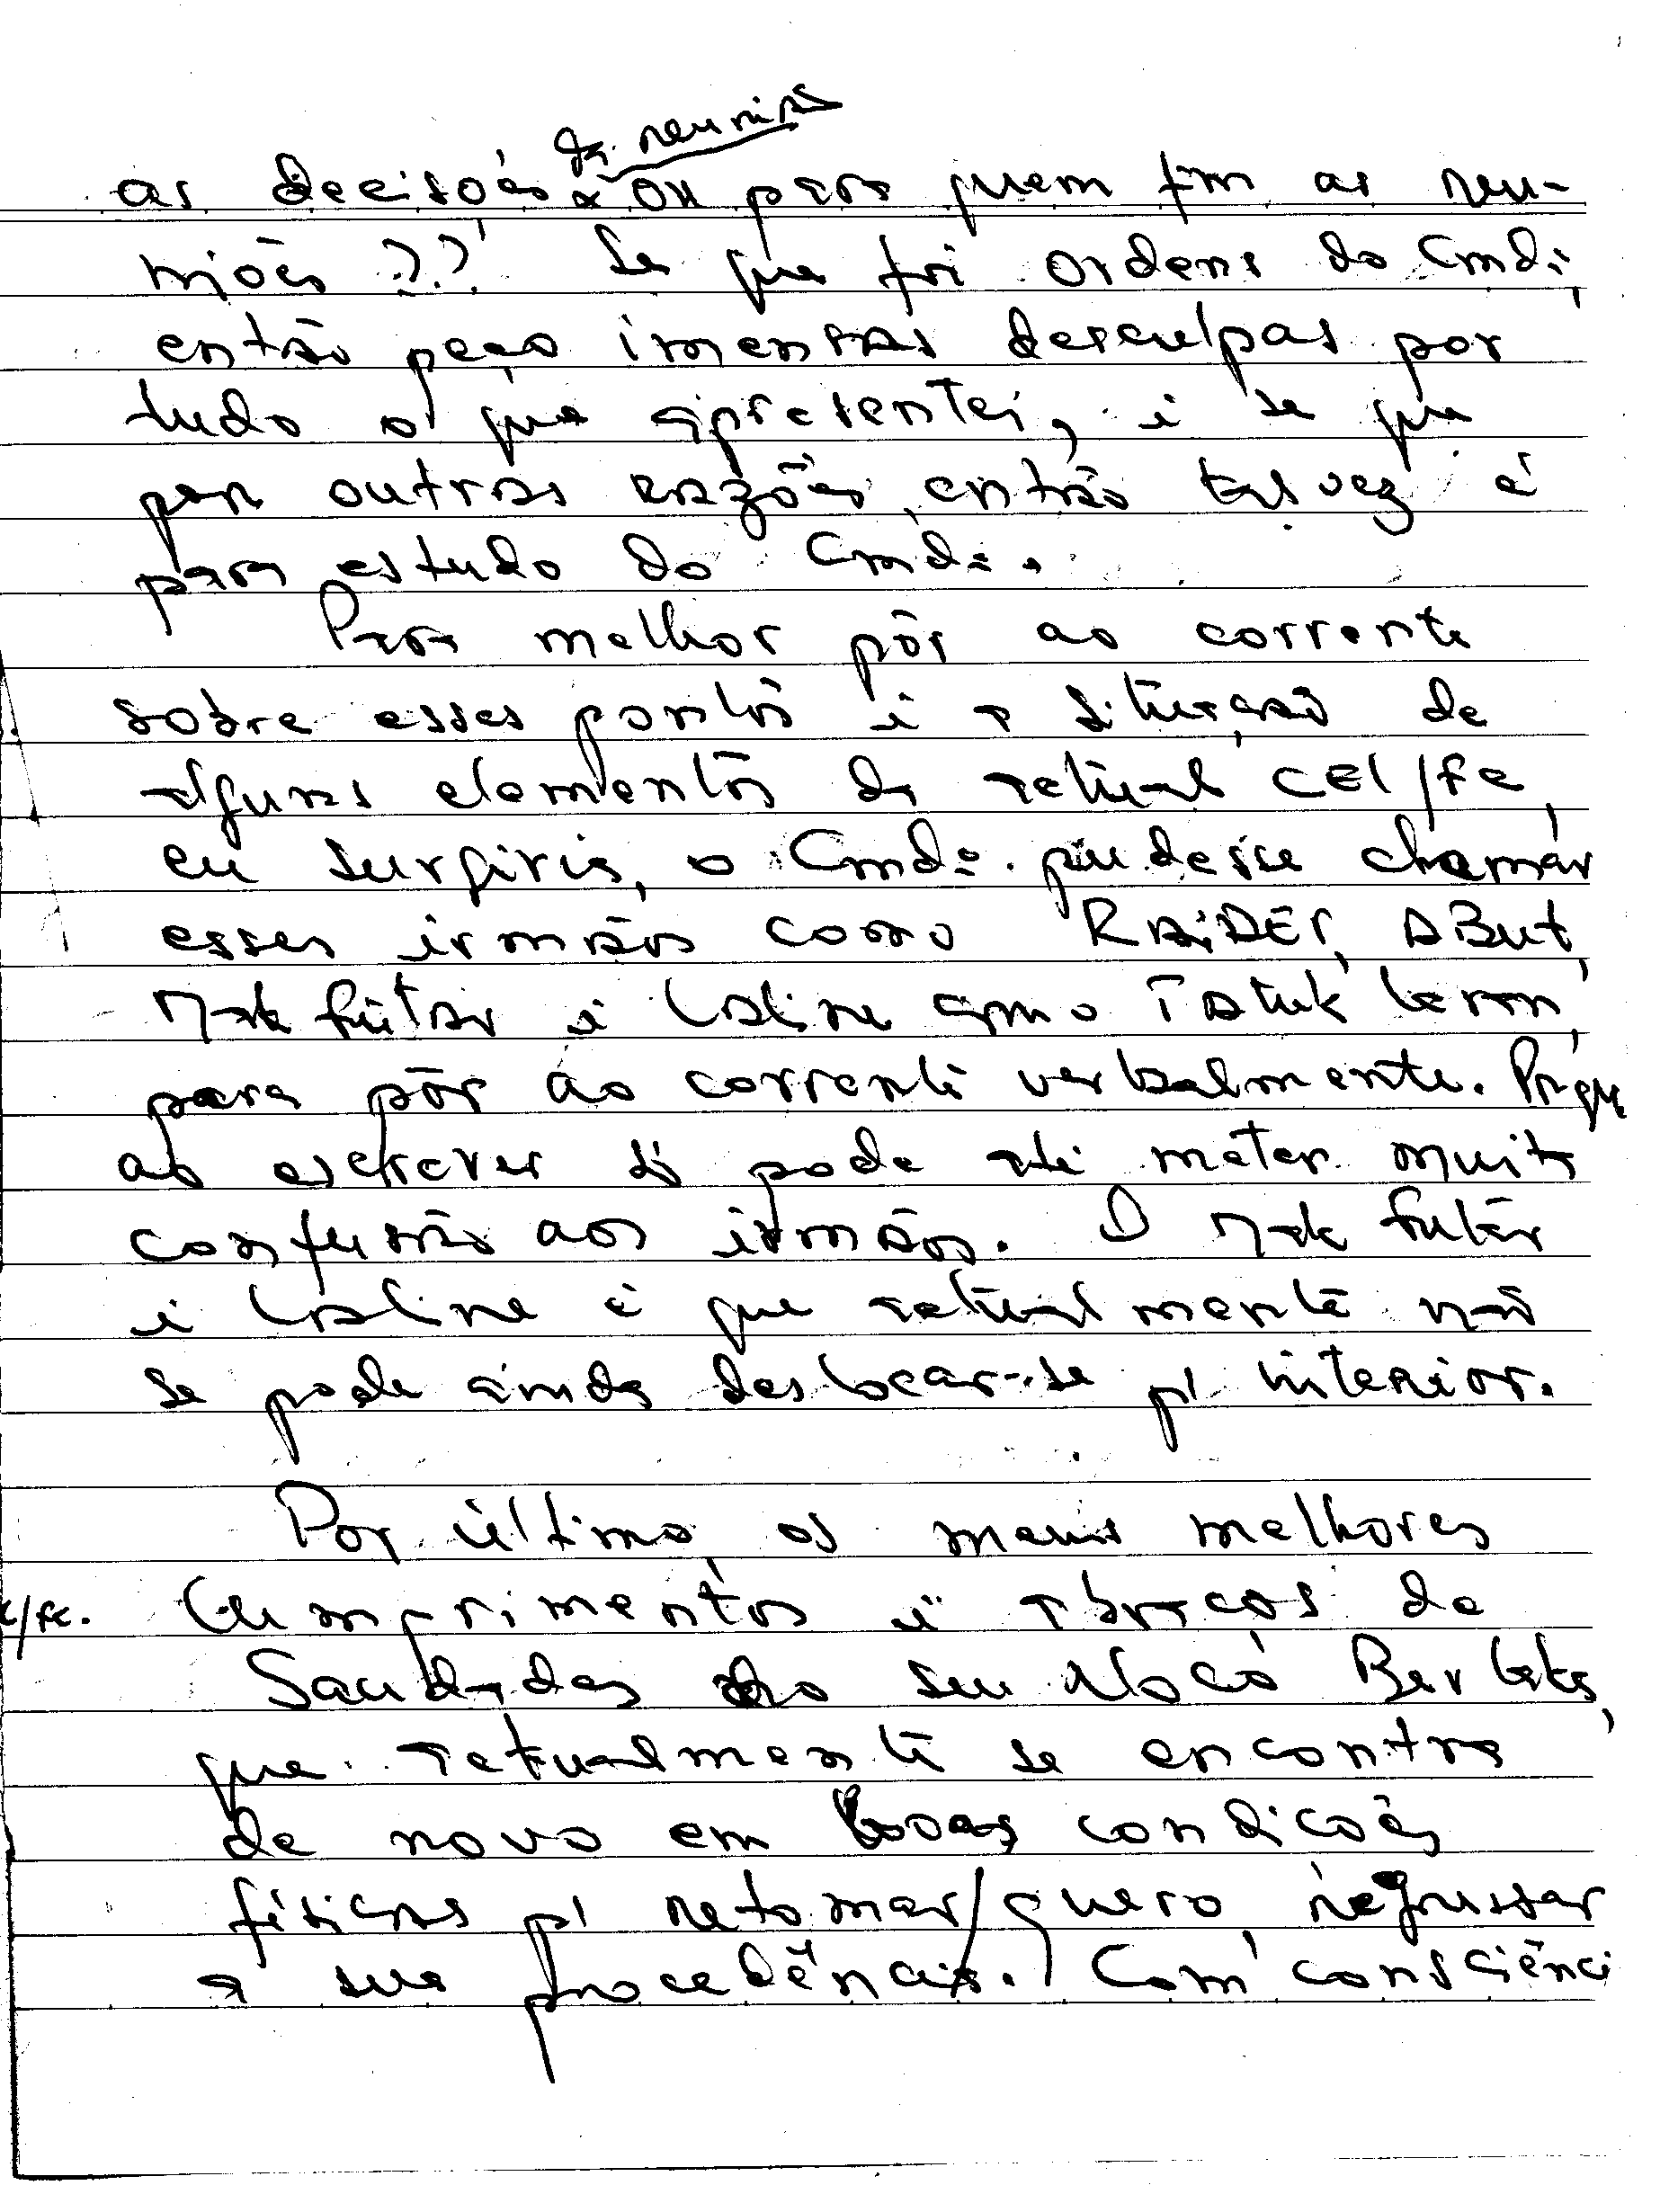 da reunião
as decisões ou para quem fim as reu-
niões ??' Se que foi ordens do Cmdº,
então peço imensas desculpas por
tudo o que apresentei, i se que
por outras razões, então talvez é
para estudo do Cmdº.
Para melhor pôr ao corrente
sobre esses pontos i a situação de
alguns elementos da actual CEL/FE,
eu surgiria, o Cmdº. pudesse chamar
esses irmãos como RAIDER, ABUT,
Mak Fuitar i Laline como Tatuk
para pôr ao corrente verbalmente. Porque
ao escrever só pode até meter muita
confusão aos irmãos. O Mak Futár
i Laline é que actualmente não
se pode ainda deslocar-se p' interior.
Por último, os meus melhores
/fe. Cumprimentos i abraços de
Saudades do seu Alocó
que actualmente se encontra
de novo em boas condições
físicas p' retomar/quero, regressar
a sua procedência. Com consciênci